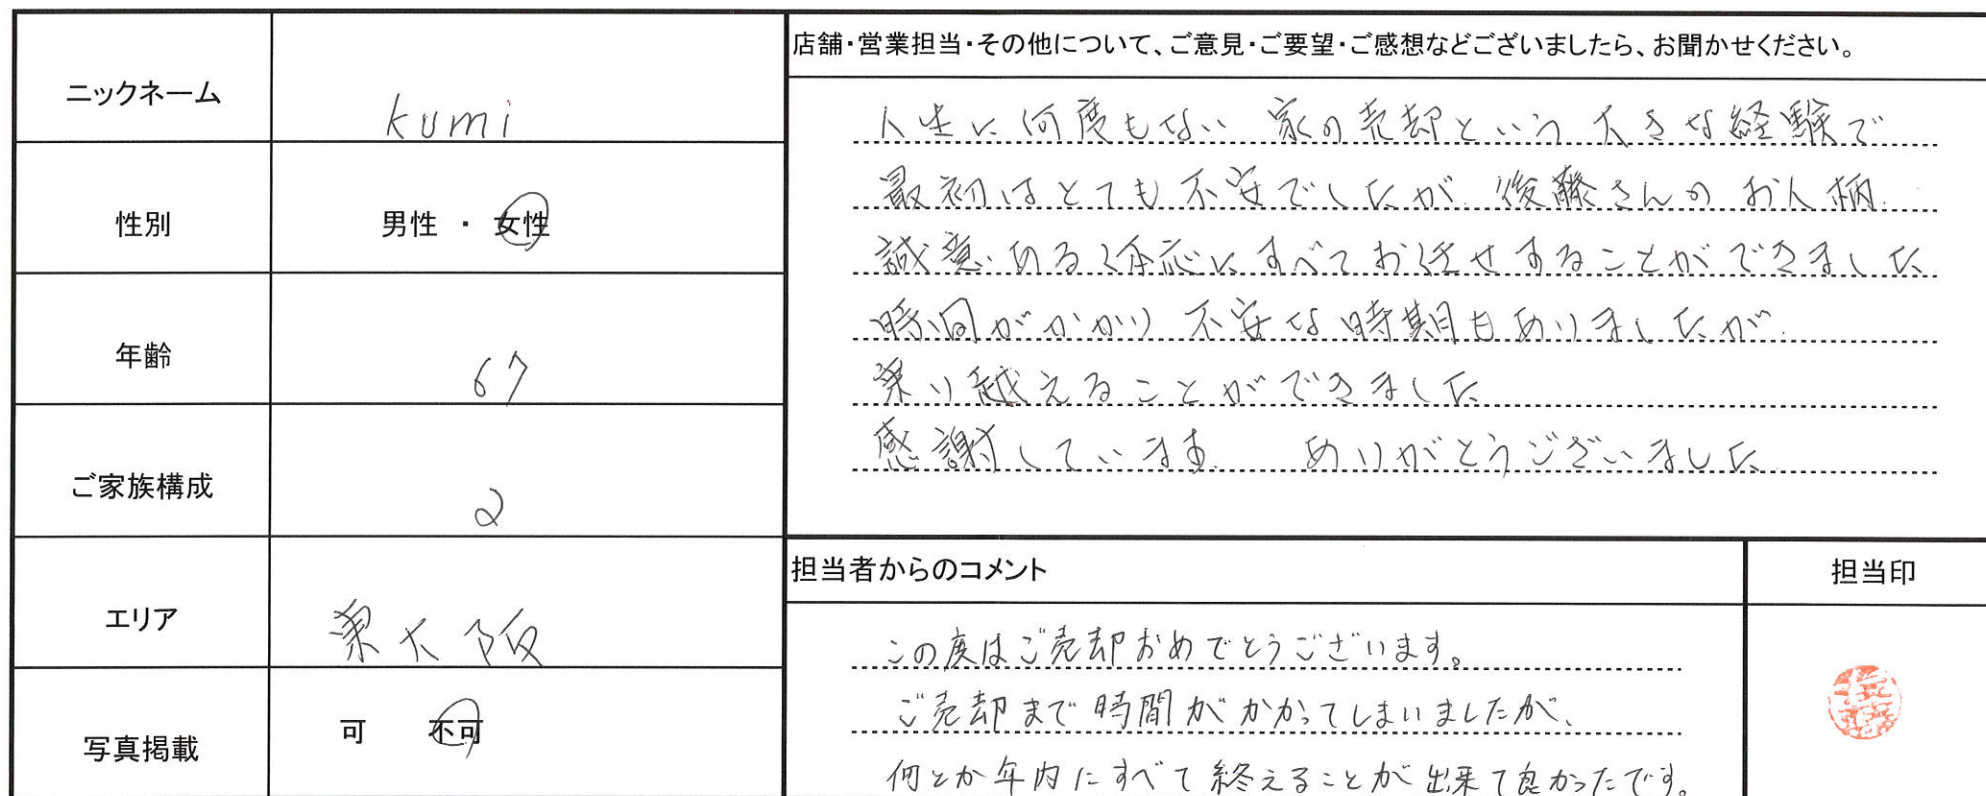 ニックネーム
kumi
性別
男性 ・ 女性
年齢
67
ご家族構成
2
エリア
東大阪
写真掲載
可 不可
店舗・営業担当・その他について、ご意見・ご要望・ご感想などございましたら、お聞かせください。
人生に何度もない 家の売却という 大きな経験で
最初はとても不安でしたが 後藤さんの お人柄
誠意ある対応に すべてお任せすることができました
時間がかかり 不安な時期もありましたが
乗り越えることができました
感謝しています ありがとうございました
担当者からのコメント
この度はご売却おめでとうございます。
ご売却まで時間がかかってしまいましたが、
何とか年内にすべて終えることが出来て良かったです。
担当印
後藤